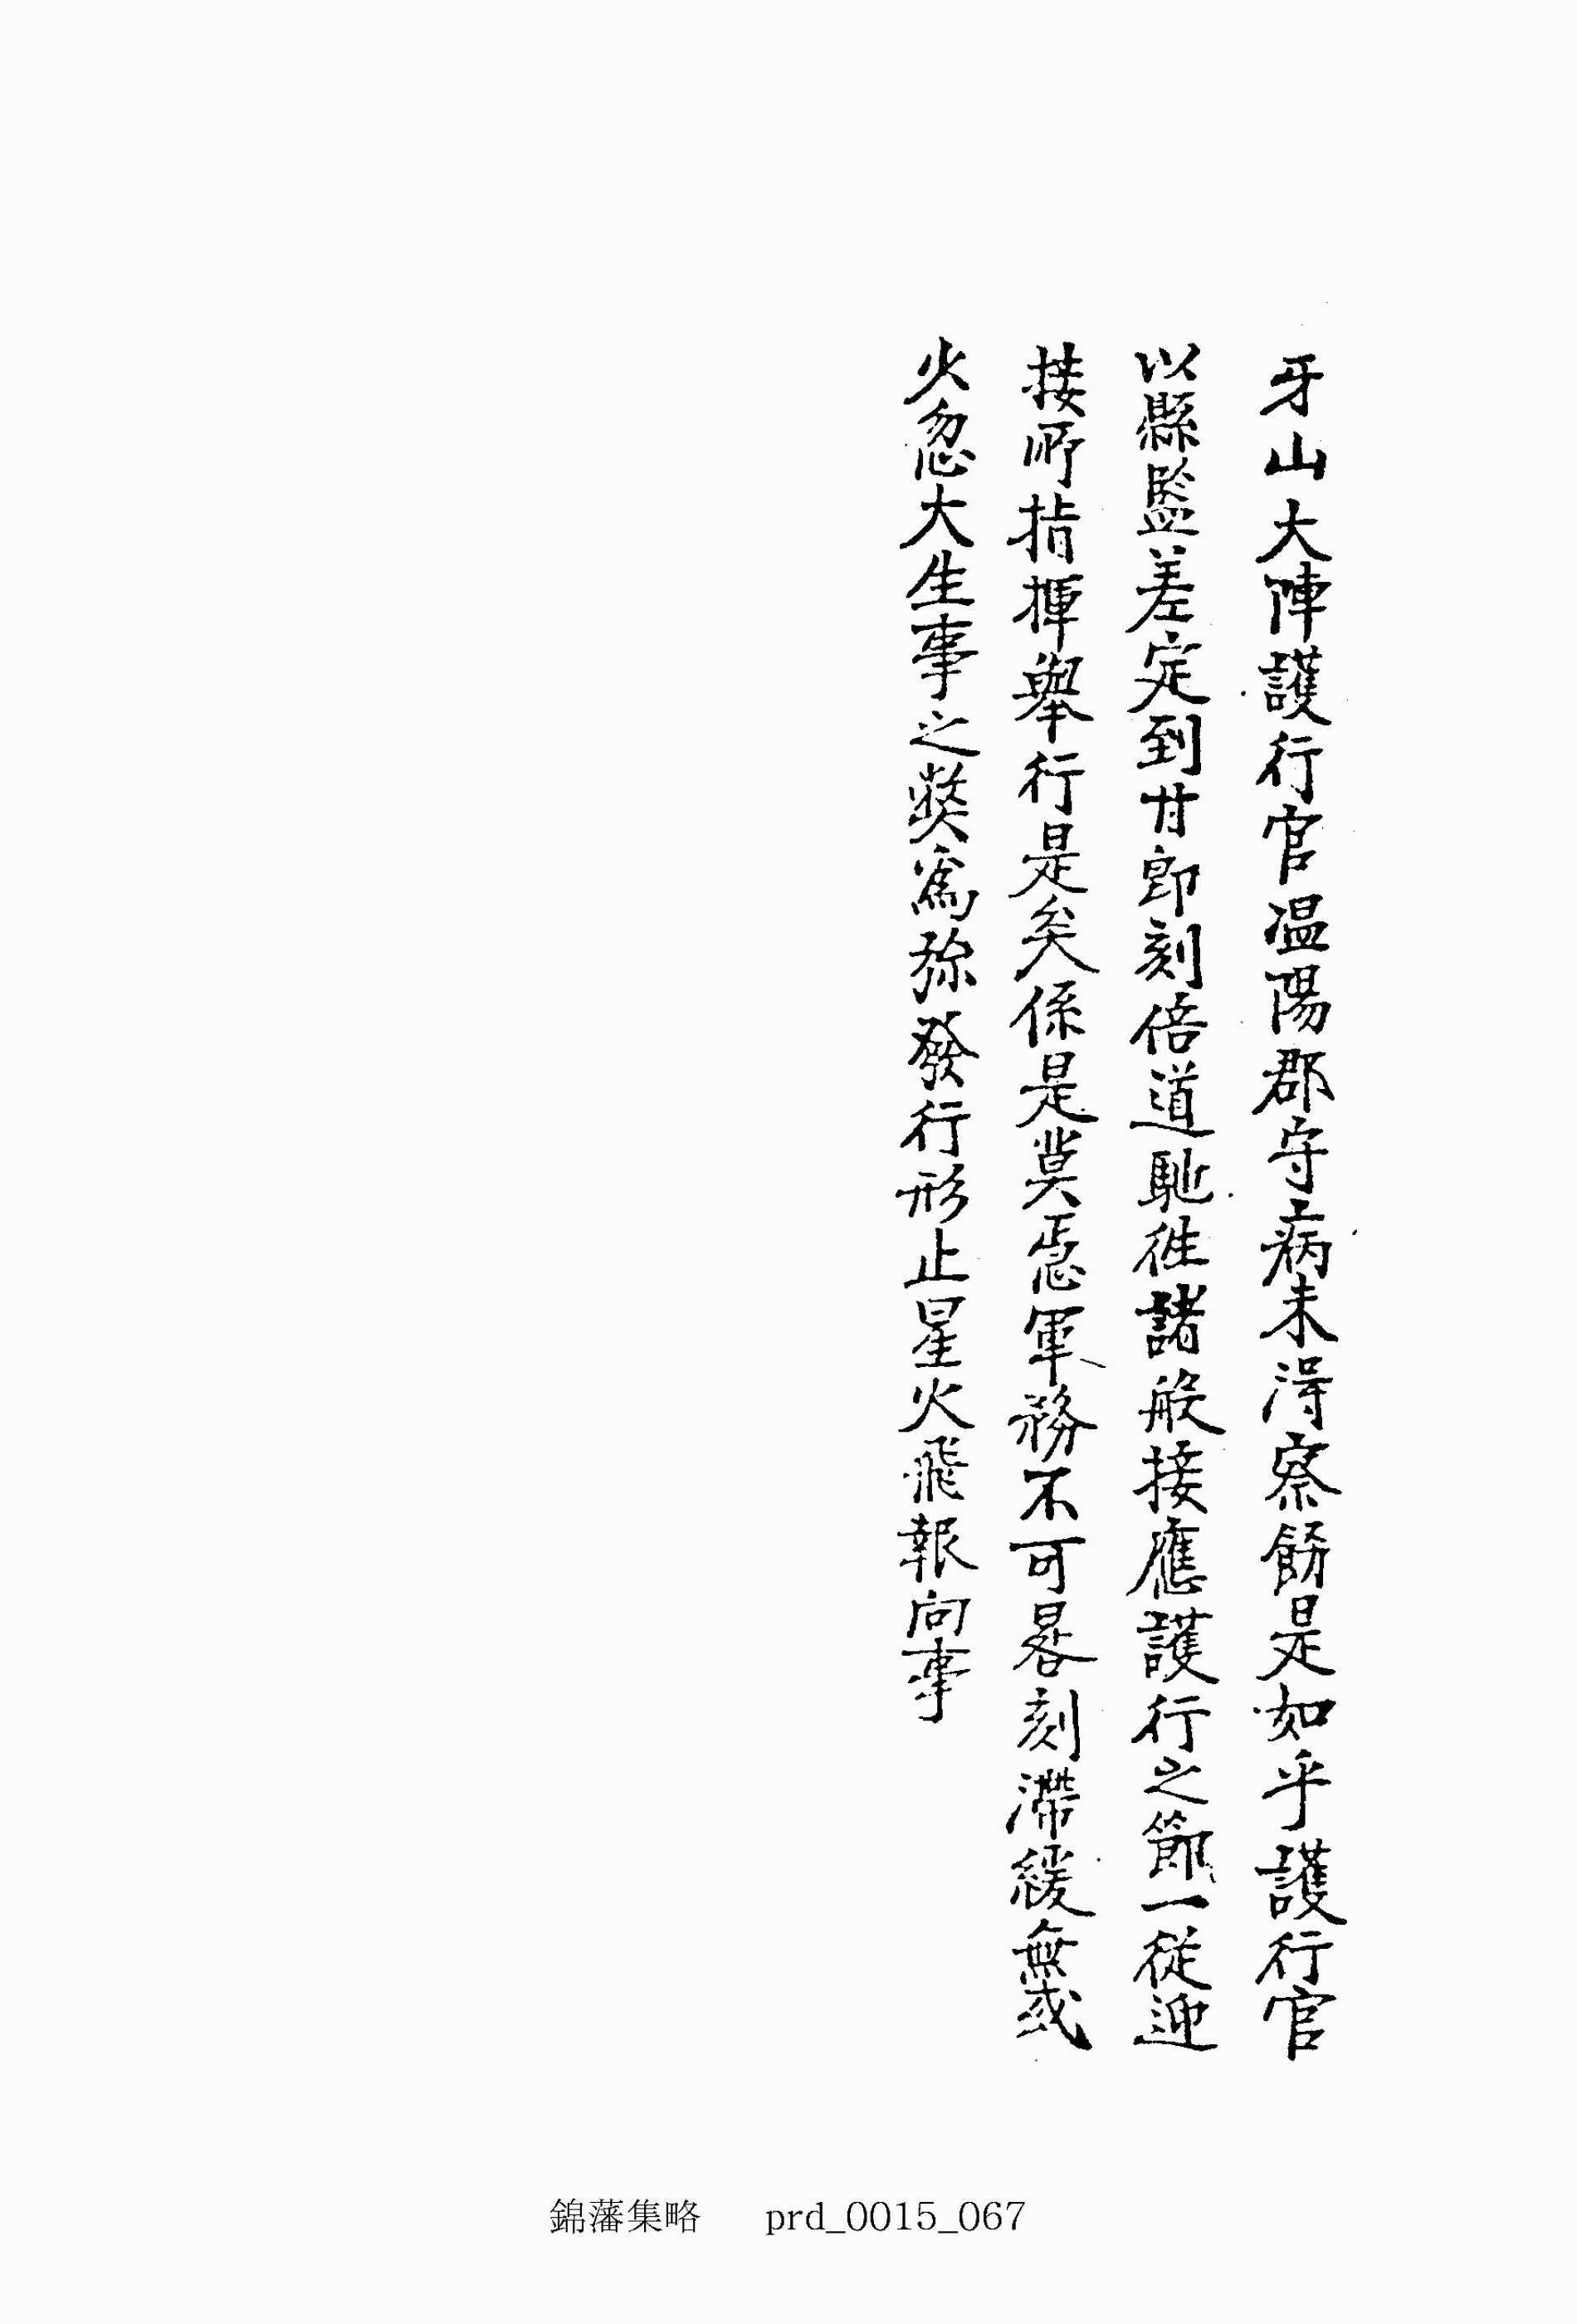 牙山大陣護行官温陽郡守病未得察飭是如乎護行官
以縣監差定到甘卽刻倍道馳徃諸般接應護行之節一從迎
接所指揮擧行是矣係是莫愆軍務不可晷刻滯緩無或
火忽大生事之獘爲旀發行形止星火飛報向事
錦藩集略 prd_0015_067